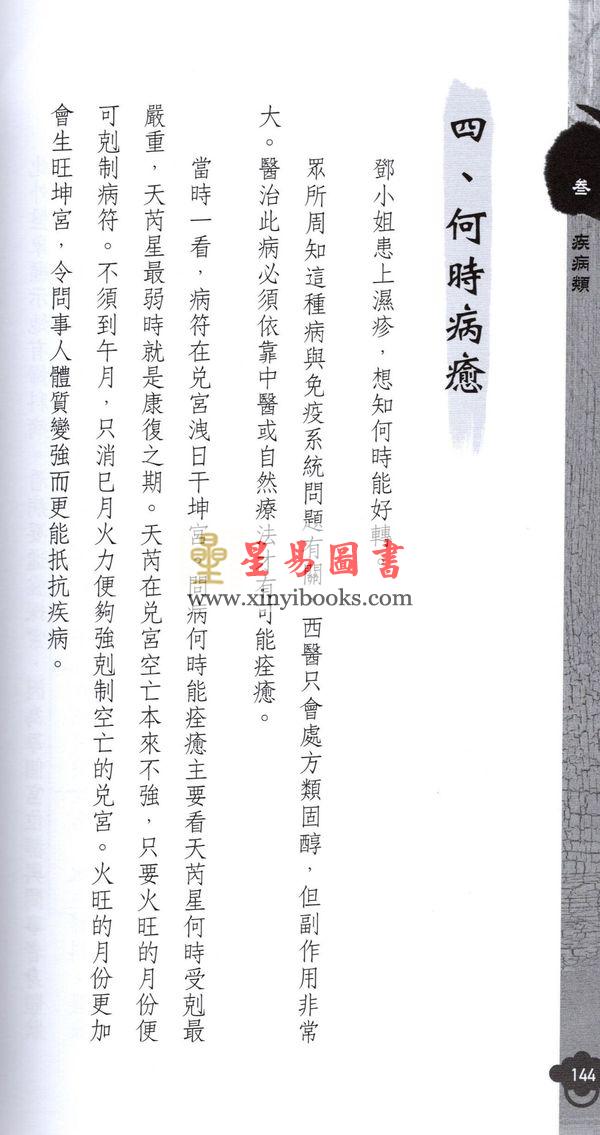 叁 疾病類
四、何時病癒
鄧小姐患上濕疹，想知何時能好轉。
眾所周知這種病與免疫系統問題有關，西醫只會處方類固醇，但副作用非常
大。醫治此病必須依靠中醫或自然療法才有可能痊癒。
當時一看，病符在兌宮洩日干坤宮，問病何時能痊癒主要看天芮星何時受剋最
嚴重，天芮星最弱時就是康復之期。天芮在兌宮空亡本來不強，只要火旺的月份便
可剋制病符。不須到午月，只消巳月火力便夠強剋制空亡的兌宮。火旺的月份更加
會生旺坤宮，令問事人體質變強而更能抵抗疾病。
星易圖書
www.xinyibooks.com
144